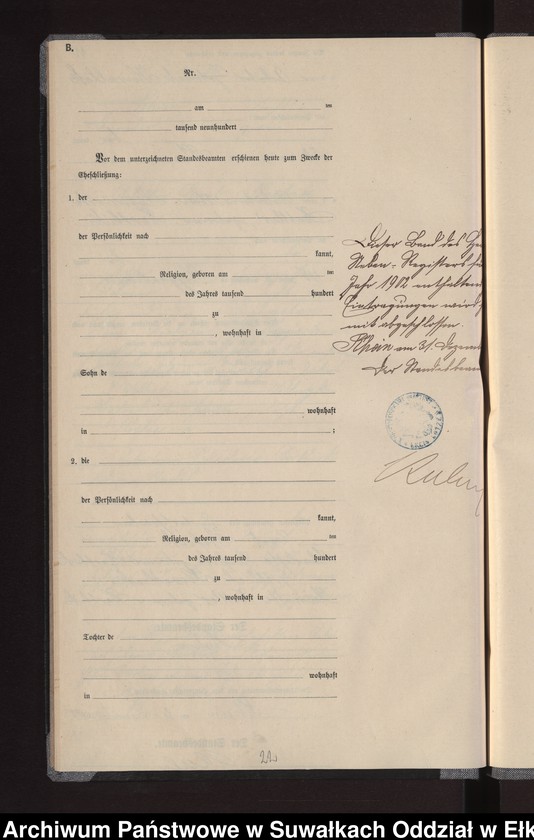 B.
Nr.
am ten
tausend neunhundert
Vor dem unterzeichneten Standesbeamten erschienen heute zum Zwecke der
Eheschließung:
1. der
der Persönlichkeit nach
kannt,
Religion, geboren am ten
des Jahres tausend hundert
zu
, wohnhaft in
Sohn de
wohnhaft
in ;
2. die
der Persönlichkeit nach
kannt,
Religion, geboren am ten
des Jahres tausend hundert
zu
, wohnhaft in
Tochter de
wohnhaft
in
Dieser Band des
Neben-Registers
Jahr 1902
Eintragungen wird
mit abgeschlossen.
Rhein am 31. Dezem
Der Standesbeam
22
Archiwum Państwowe w Suwałkach Oddział w Ełk